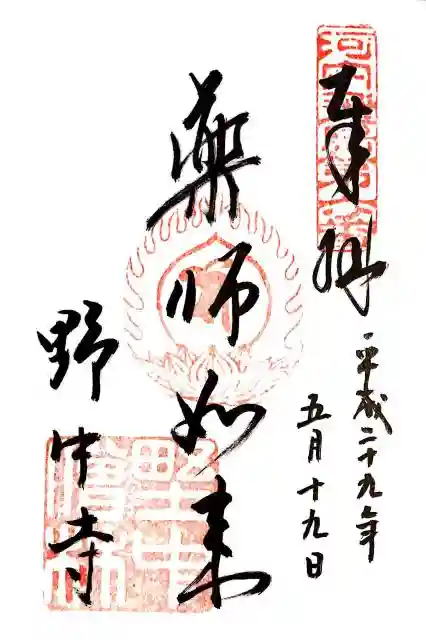 奉拝
平成二十九年
五月十九日
薬師如来
野中寺